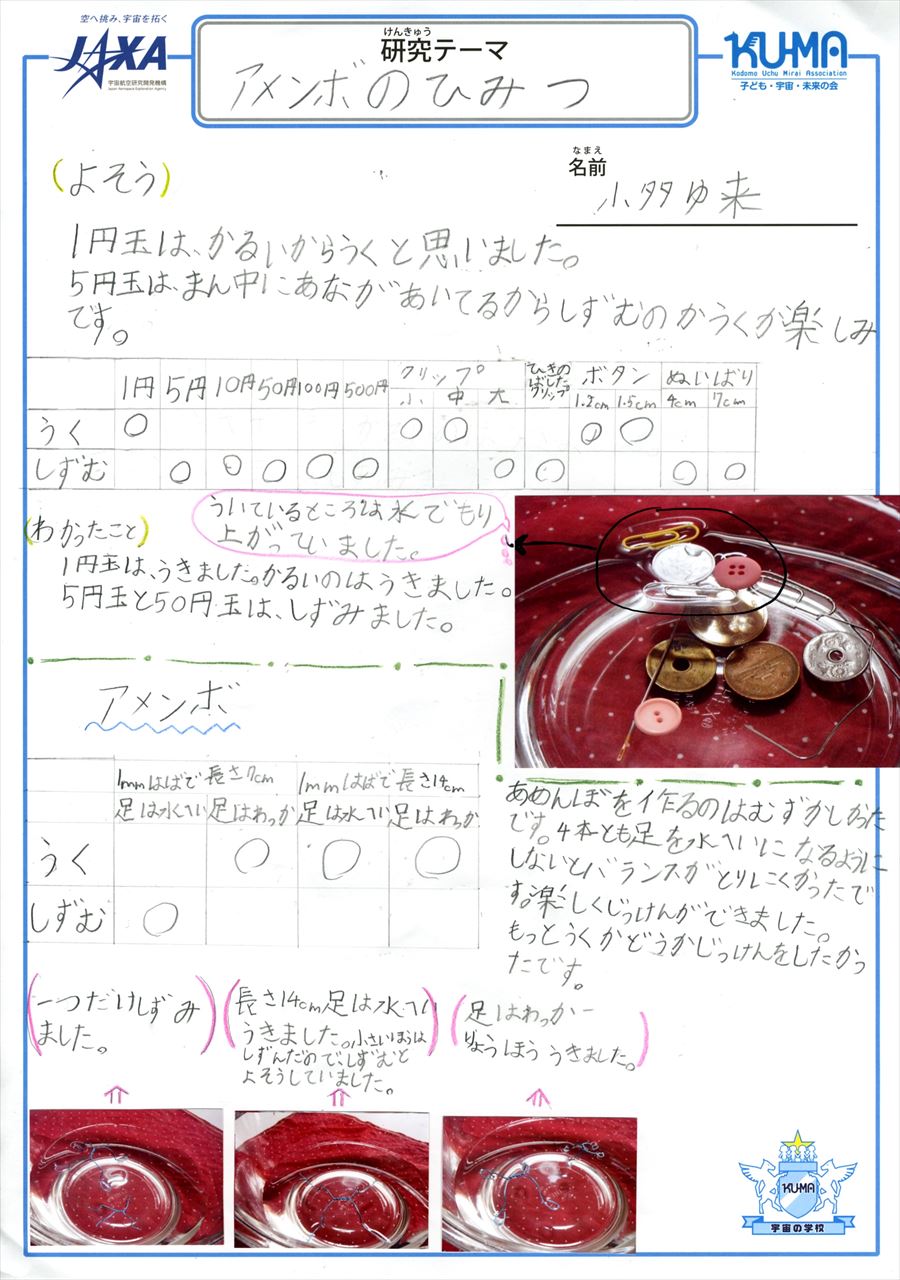 空へ挑み、宇宙を拓く
JAXA
宇宙航空研究開発機構
Japan Aerospace Exploration Agency
けんきゅう
研究テーマ
アメンボのひみつ
KU-MA
Kodomo Uchu Mirai Association
子ども・宇宙・未来の会
なまえ
名前
小多ゆ来
(よそう)
1円玉は、かるいからうくと思いました。
5円玉は、まん中にあながあいてるからしずむのかうくが楽しみ
です。
1円 5円 10円 50円 100円 500円 クリップ 小 中 大 ひきのばしたクリップ ボタン 1.2cm 1.5cm ぬいばり 4cm 7cm
うく ○ ○ ○ ○ ○
しずむ ○ ○ ○ ○ ○ ○ ○ ○ ○
ういているところは水でもり
上がっていました。
(わかったこと)
1円玉は、うきました。かるいのはうきました。
5円玉と50円玉は、しずみました。
アメンボ
1mmはばで長さ7cm 1mmはばで長さ14cm
足は水へい 足はわっか 足は水へい 足はわっか
うく ○ ○ ○
しずむ ○
あめんぼを作るのはむずかしかった
です。4本とも足を水へいになるように
しないとバランスがとりにくかったで
す。楽しくじっけんができました。
もっとうくかどうかじっけんをしたかっ
たです。
(一つだけしずみ
ました。)
(長さ14cm足は水へい
うきました。小さいほうは
しずんだのでしずむと
よそうしていました。)
(足はわっかー
りょうほううきました。)
KU-MA
宇宙の学校